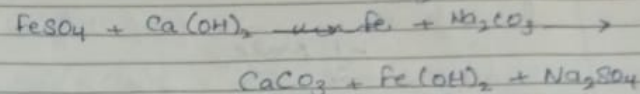 FeSO₄ + Ca(OH)₂ + Na₂CO₃ →
CaCO₃ + Fe(OH)₂ + Na₂SO₄